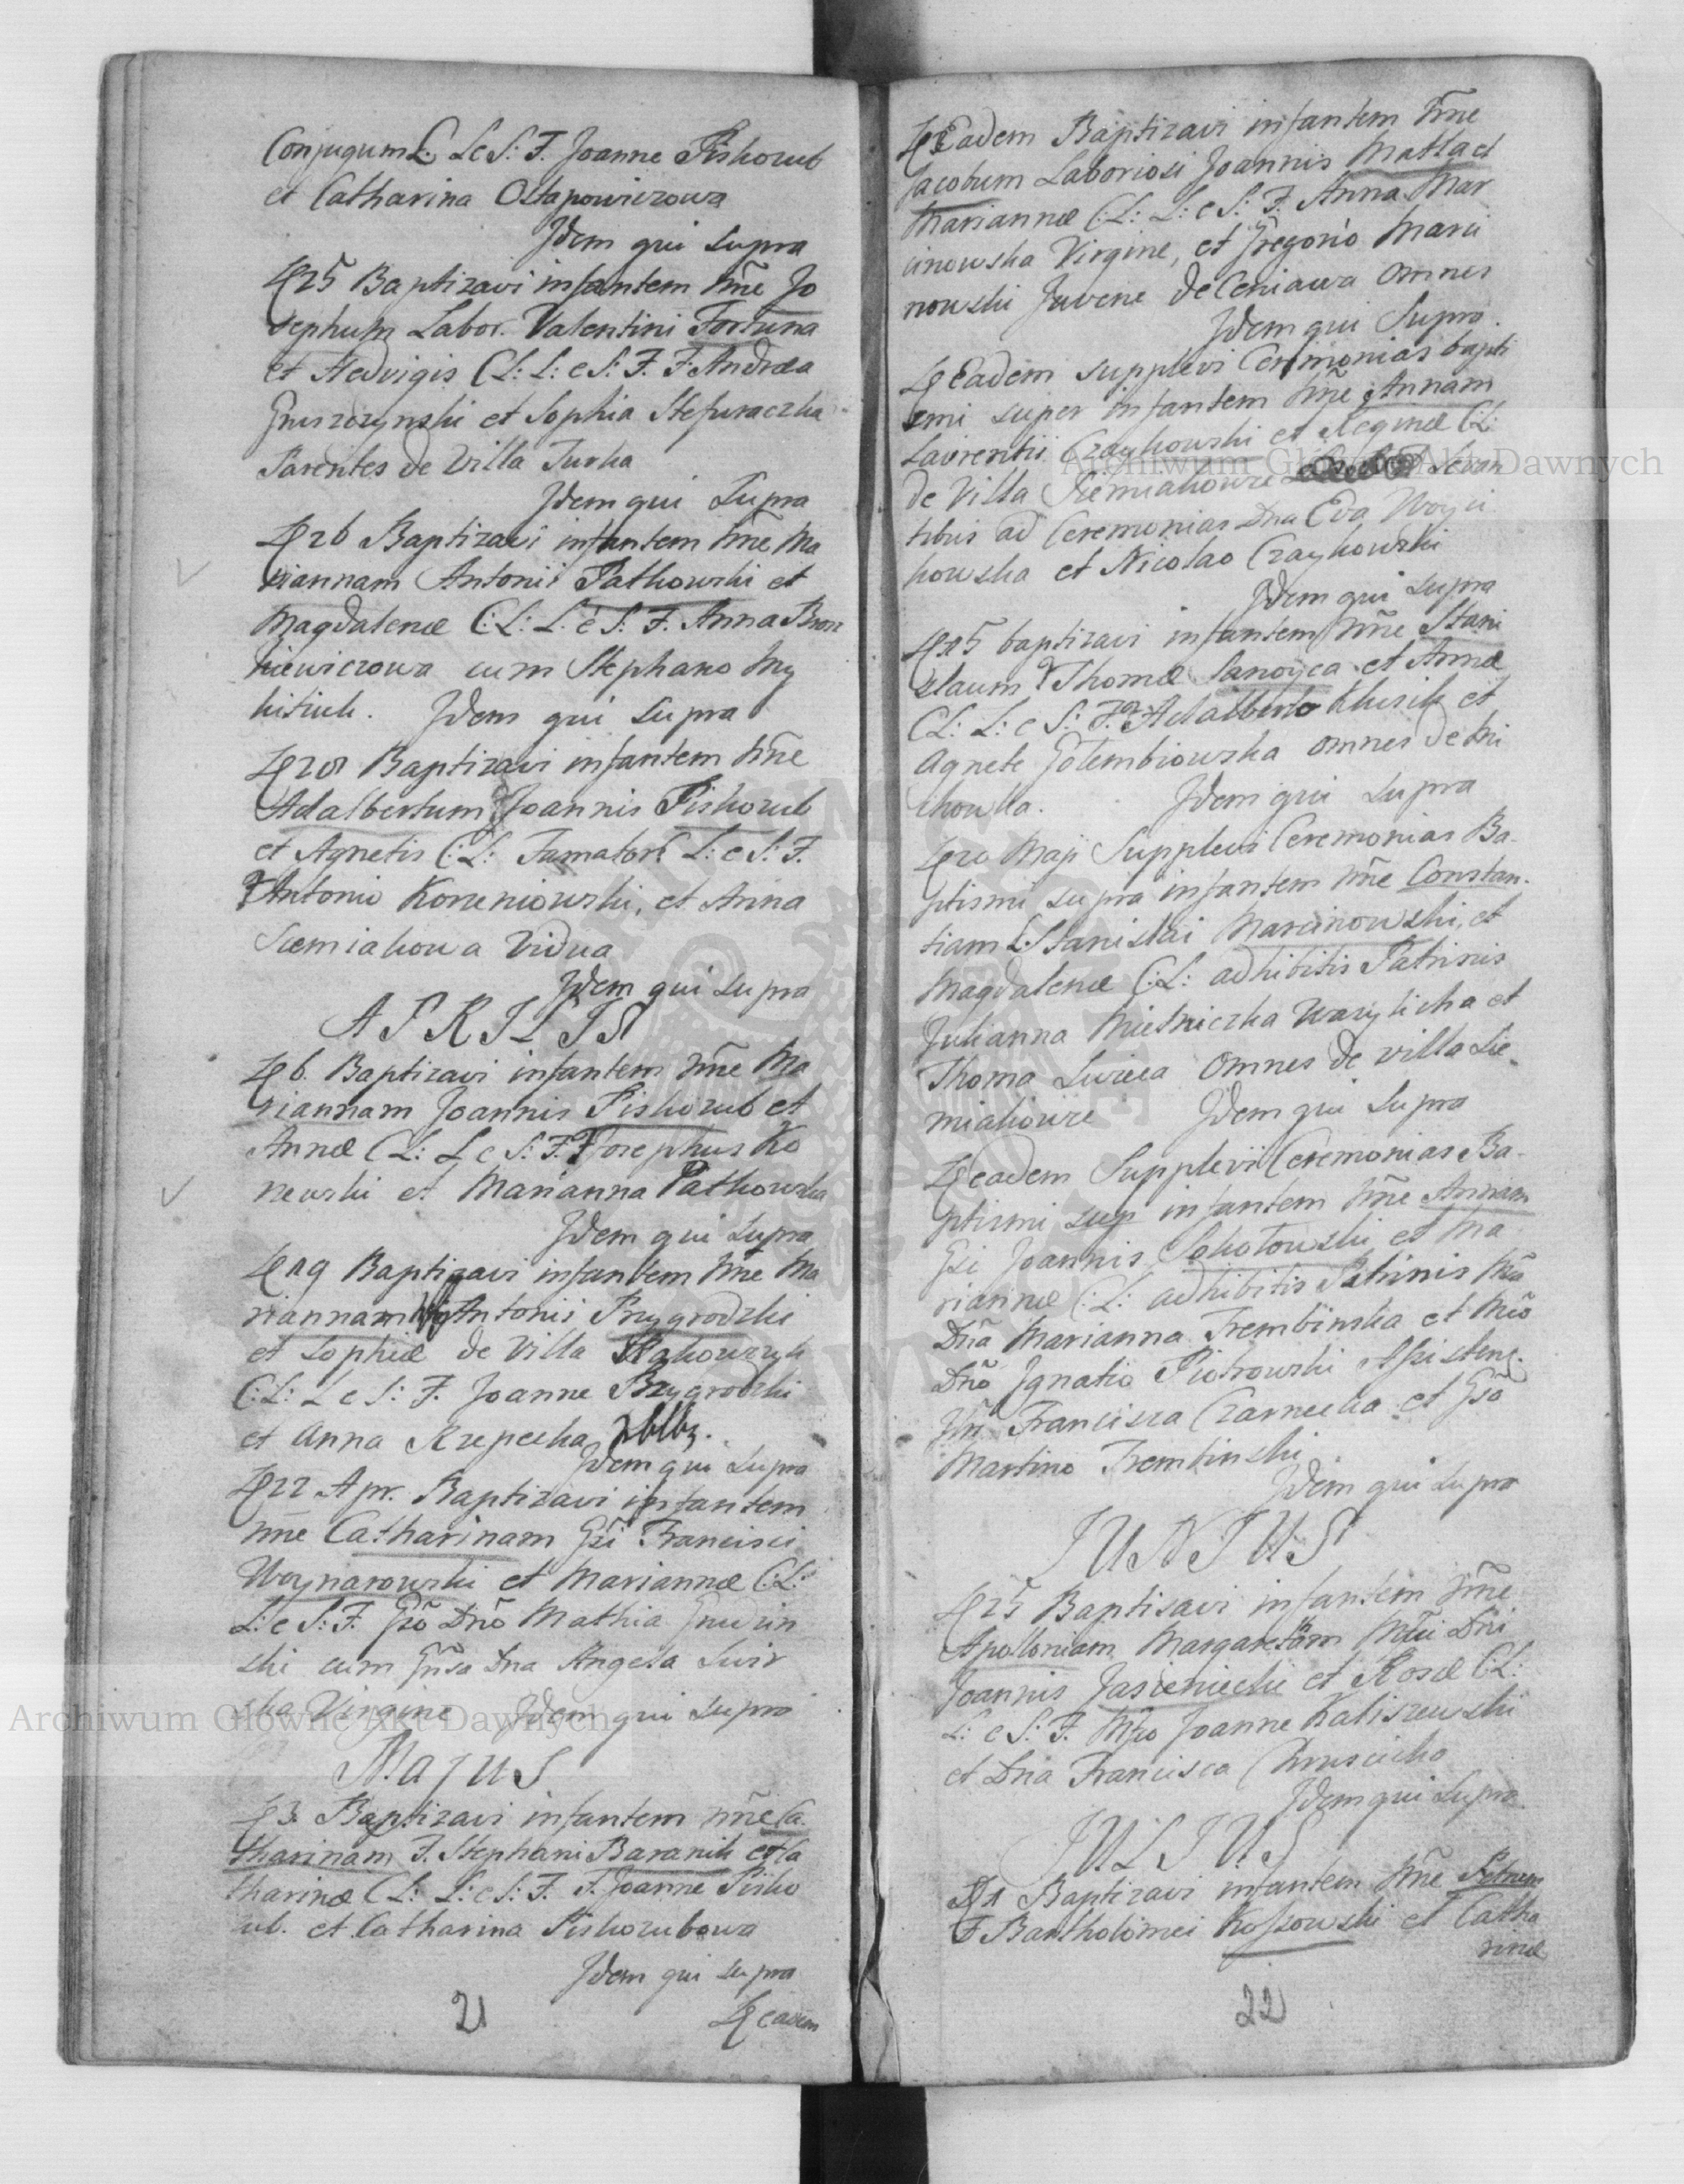 Conjugum L: L e S: F. Joanne Piskozub
et Catharina Ostapowiczowa
Idem qui supra
25 Baptizavi infantem nne Jo
sephum Labor. Valentini Fortuna
et Hedvigis C: L: L: e S: F. F. Andrea
Gruszczynski et Sophia Stefuraczka
Parentes de Villa Turka
Idem qui Supra
26 Baptizavi infantem nne Ma
riannam Antonii Patkowski et
Magdalenæ C: L: L: e S: F. Anna
kiewiczowa cum Stephano My
kitiuk. Idem qui supra
Baptizavi infantem nne
Adalbertum Joannis Piskozub
et Agnetis C: L: Famator: L: e S: F.
Antonio Korzeniowski, et Anna
Siemiakowa Vidua
Idem qui supra
APRILIS
6. Baptizavi infantem nne Ma
riannam Joannis Piskozub et
Annæ C: L: L e S: F. Josephus Ko
newski et Marianna Patkowska
Idem qui supra
19 Baptizavi infantem nne Ma
riannam Antonii Przygrodzki
et Sophiæ de Villa Rakowczyk
C: L: L e S: F. Joanne Przygrodzki
et Anna Rzepecka
Idem qui supra
22 Apr. Baptizavi infantem
nne Catharinam Gsi Francisci
Woynarowski et Mariannæ C: L:
L: e S: F. Gso Dno Mathia Grudzin
ski cum Gnsa Dna Angela Swir
ska Virgine Idem qui supra
Majus
3 Baptizavi infantem nne Ca
tharinam F. Stephani Baranik et Ca
tharinæ C: L: L: e S: F. F. Joanne Pisko
zub. et Catharina Piskozubowa
Idem qui supra
21
eadem
Eadem Baptizavi infantem nne
Jacobum Laboriosi Joannis Matla et
Mariannæ C: L: L: e S: F. Anna Mar
cinowska Virgine, et Gregorio Marci
nowski Juvene de Ceniawa omnes
Idem qui Supra.
Eadem supplevi Ceremonias bapti
smi super infantem nne Annam
Laurentii Czaykowski et Reginæ C: L:
de Villa Siemiakowce Levan
tibus ad Ceremonias Dna Eva Woyci
kowska et Nicolao Czaykowski
Idem qui supra
15 baptizavi infantem nne Stani
slaum Thomæ Sanoyca et Annæ
C: L: L: e S: F. Adalberto Klusik et
Agnete Golembiowska omnes de Mi
chowka. Idem qui supra
20 Maji Supplevi Ceremonias Ba-
ptismi supra infantem nne Constan-
tiam L: Stanislai Marcinowski, et
Magdalenæ C: L: adhibitis Patrinis
Julianna Mielniczka Wasylicha et
Thoma Omnes de villa Sie-
miakowce Idem qui supra
eadem Supplevi Ceremonias Ba-
ptismi sup infantem nne Annam
Gsi Joannis Sokolowski et Ma
riannæ C: L: adhibitis Patrinis Mca
Dna Marianna Trembinska et Mco
Dno Ignatio Piotrowski Assistent.
Francisca Czarnecka et Gso
Martino Trembinski
Idem qui supra
JUNIUS
25 Baptisavi infantem nne
Apolloniam Margaretam Dni
Joannis Jasieniecki et Rosæ C: L:
L: e S: F. Joanne Kaliszewski
et Dna Francisca
Idem qui supra
JULIUS
1 Baptizavi infantem nne Petrum
F Bartholomei Kossowski et Catha
rinæ
22
Archiwum Główne Akt Dawnych
Archiwum Główne Akt Dawnych